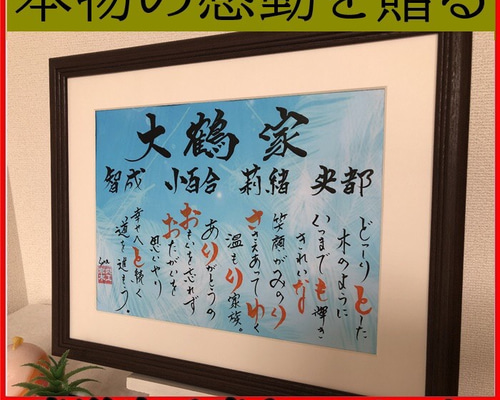 本物の感動を贈る
大鶴家
智成 小百合 莉緒 央都
どっしりとした
木のように
いつまでも輝き
きれいな
笑顔がみのり
ささえあってゆく
温もり家族。
ありがとうの
おもいを忘れず
おたがいを
思いやり
幸せへと続く
道を進もう。